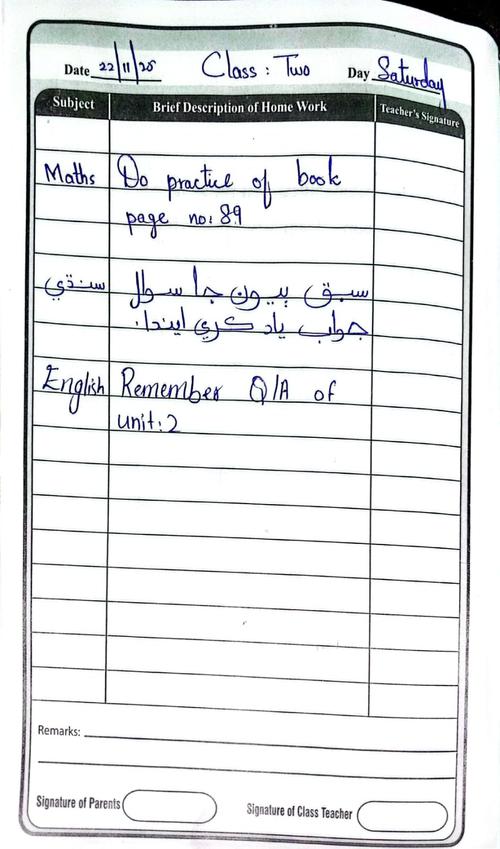 Date 22/11/25 Class: Two Day Saturday
Subject Brief Description of Home Work Teacher's Signature
Maths Do practice of book
page no: 89
سنڌي سبق ٻيون جا سوال
جواب ياد ڪري ايندا.
English Remember Q/A of
unit:2
Remarks:
Signature of Parents Signature of Class Teacher